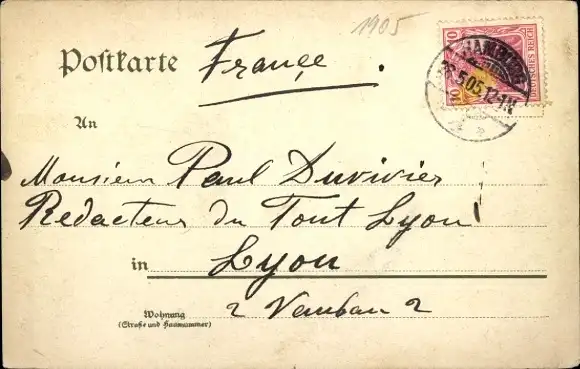 1905
Postkarte France.
10 DEUTSCHES REICH 10
HAMBURG
5.05.12-1N
An
Monsieur Paul Duvivier
Redacteur du Tout Lyon
in Lyon
Wohnung
(Straße und Hausnummer)
2 Vauban 2